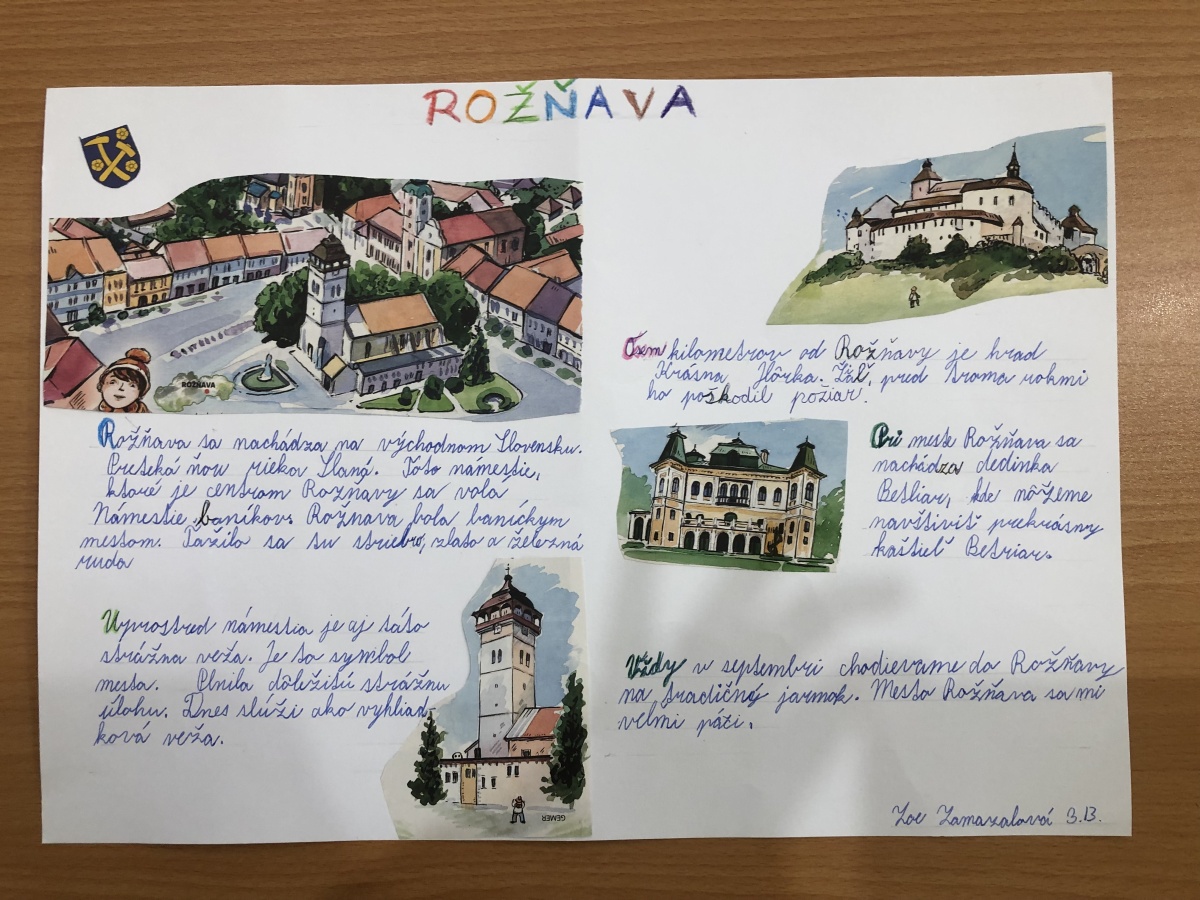 ROŽŇAVA
ROŽŇAVA
Rožňava sa nachádza na východnom Slovensku.
Preteká ňou riekov Slaná. Tóto namestie,
ktoré je centrom Rožňavy sa vola
Námestie baníkov. Rožnava bola baníckym
mestom. Ťažilo sa tu striebro, zlato a železná
ruda
Uprostred námestia je aj táto
strážna veža. Je to symbol
mesta. Plnila dôležitú strážnu
úlohu. Dnes slúži ako vyhliad
ková veža.
GEMER
Osem kilometrov od Rožňavy je hrad
Krásna Hôrka. Žiaľ, pred troma rokmi
ho poškodil požiar.
Pri meste Rožňava sa
nachádza dedinka
Betliar, kde môžeme
navštíviť prekrásny
kaštieľ Betriar.
Vždy v septembri chodievame do Rožňavy
na tradičný jarmok. Mesto Rožňava sa mi
velmi páči.
Zoe Zamazalová 3.B.